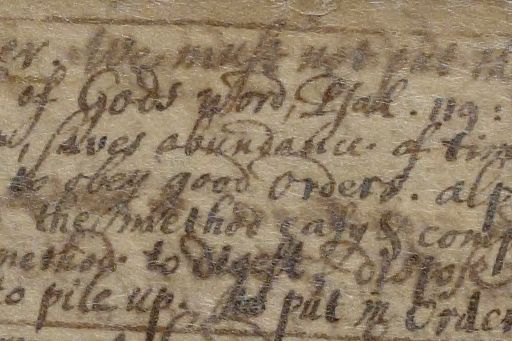 er. We must not put th
of Gods word, Psal. 119:
saves abundance. of tim
to obey good orders. alp
the method easy & comp
method. to digest, dispose
to pile up. to put in Order